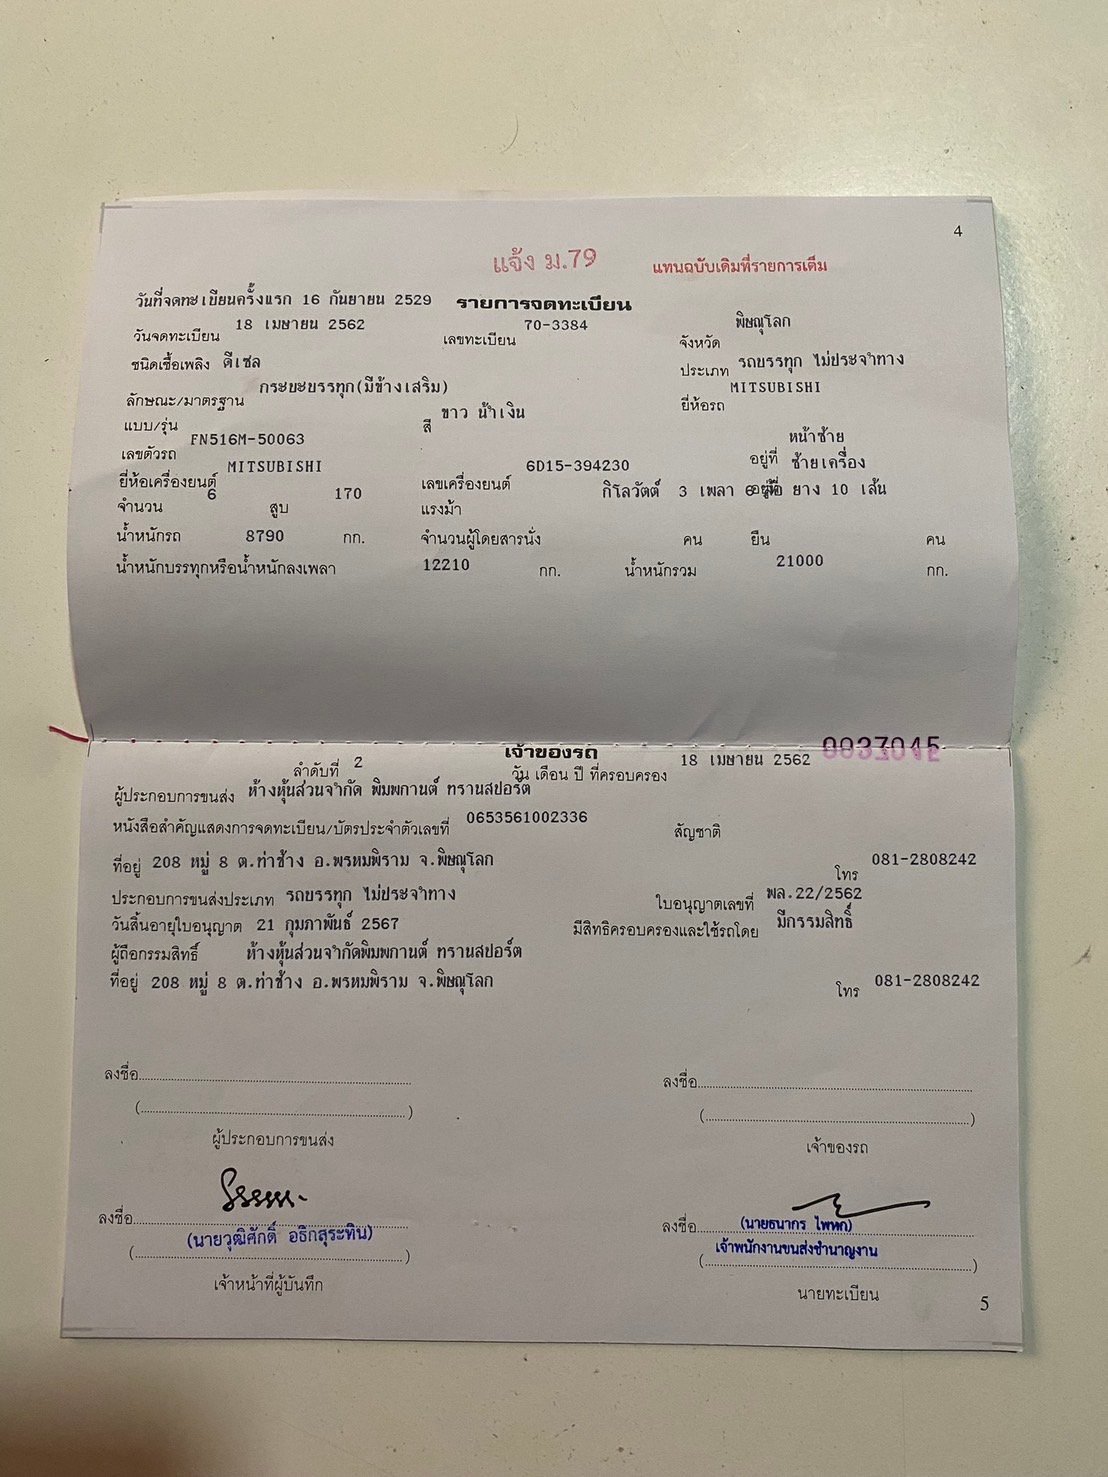 4
แจ้ง ม.79 แทนฉบับเดิมที่รายการเต็ม
วันที่จดทะเบียนครั้งแรก 16 กันยายน 2529 รายการจดทะเบียน
วันจดทะเบียน 18 เมษายน 2562 เลขทะเบียน 70-3384 จังหวัด พิษณุโลก
ชนิดเชื้อเพลิง ดีเซล ประเภท รถบรรทุก ไม่ประจำทาง
ลักษณะ/มาตรฐาน กระบะบรรทุก(มีข้างเสริม) ยี่ห้อรถ MITSUBISHI
แบบ/รุ่น สี ขาว น้ำเงิน
เลขตัวรถ FN516M-50063 อยู่ที่ หน้าซ้าย
ยี่ห้อเครื่องยนต์ MITSUBISHI เลขเครื่องยนต์ 6D15-394230 อยู่ที่ ซ้ายเครื่อง
จำนวน 6 สูบ 170 แรงม้า กิโลวัตต์ 3 เพลา 6 ล้อ ยาง 10 เส้น
น้ำหนักรถ 8790 กก. จำนวนผู้โดยสารนั่ง คน ยืน คน
น้ำหนักบรรทุกหรือน้ำหนักลงเพลา 12210 กก. น้ำหนักรวม 21000 กก.
0037045
เจ้าของรถ
ลำดับที่ 2 วัน เดือน ปี ที่ครอบครอง 18 เมษายน 2562
ผู้ประกอบการขนส่ง ห้างหุ้นส่วนจำกัด พิมพกานต์ ทรานสปอร์ต
หนังสือสำคัญแสดงการจดทะเบียน/บัตรประจำตัวเลขที่ 0653561002336 สัญชาติ
ที่อยู่ 208 หมู่ 8 ต.ท่าช้าง อ.พรหมพิราม จ.พิษณุโลก โทร 081-2808242
ประกอบการขนส่งประเภท รถบรรทุก ไม่ประจำทาง ใบอนุญาตเลขที่ พล.22/2562
วันสิ้นอายุใบอนุญาต 21 กุมภาพันธ์ 2567 มีสิทธิครอบครองและใช้รถโดย มีกรรมสิทธิ์
ผู้ถือกรรมสิทธิ์ ห้างหุ้นส่วนจำกัดพิมพกานต์ ทรานสปอร์ต
ที่อยู่ 208 หมู่ 8 ต.ท่าช้าง อ.พรหมพิราม จ.พิษณุโลก โทร 081-2808242
ลงชื่อ ลงชื่อ
( ) ( )
ผู้ประกอบการขนส่ง เจ้าของรถ
ลงชื่อ ลงชื่อ
(นายวุฒิศักดิ์ อธิกสุระทิน) (นายธนากร ไพหก)
เจ้าพนักงานขนส่งชำนาญงาน
เจ้าหน้าที่ผู้บันทึก นายทะเบียน
5